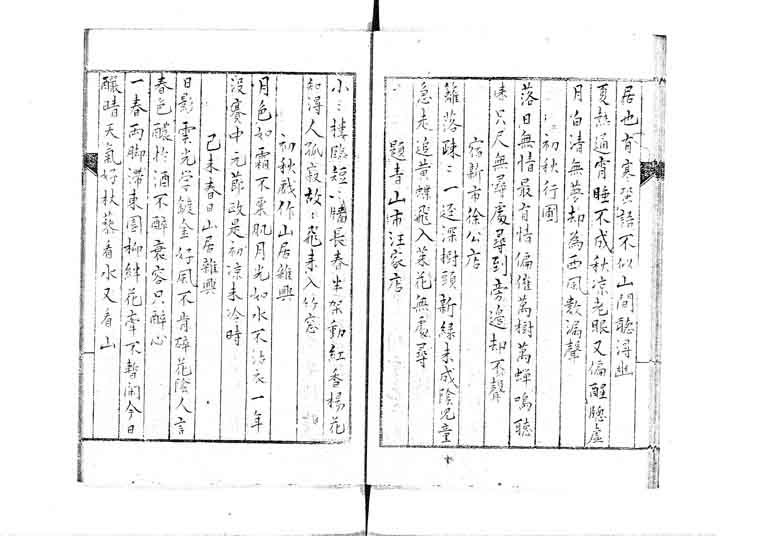 居也有寒螿語不似山間聽得幽
夏熱通宵睡不成秋凉老眼又偏醒隐虚
月白清無夢却為西風數漏聲
初秋行圃
落日無情最有情偏催萬樹萬蟬鳴聽
来只尺無尋處尋到旁邉却不聲
宿新市徐公店
籬落疎〻一逕深樹頭新緑未成陰兒童
急走追黄蝶飛入菜花無處尋
題青山市汪家店
十
小〻樓臨短〻牆長春半架動紅香楊花
知得人孤寂故〻飛来入竹窓
初秋戯作山居雜興
月色如霜不粟肌月光如水不沾衣一年
没賽中元節政是初凉未冷時
己未春日山居雜興
日影雲光学鍍金好風不肯碎花陰人言
春色醲扵酒不醉衰容只醉心
一春雨脚滞東園柳絆花牽不暫閑今日
醸晴天氣好杖藜看水又看山